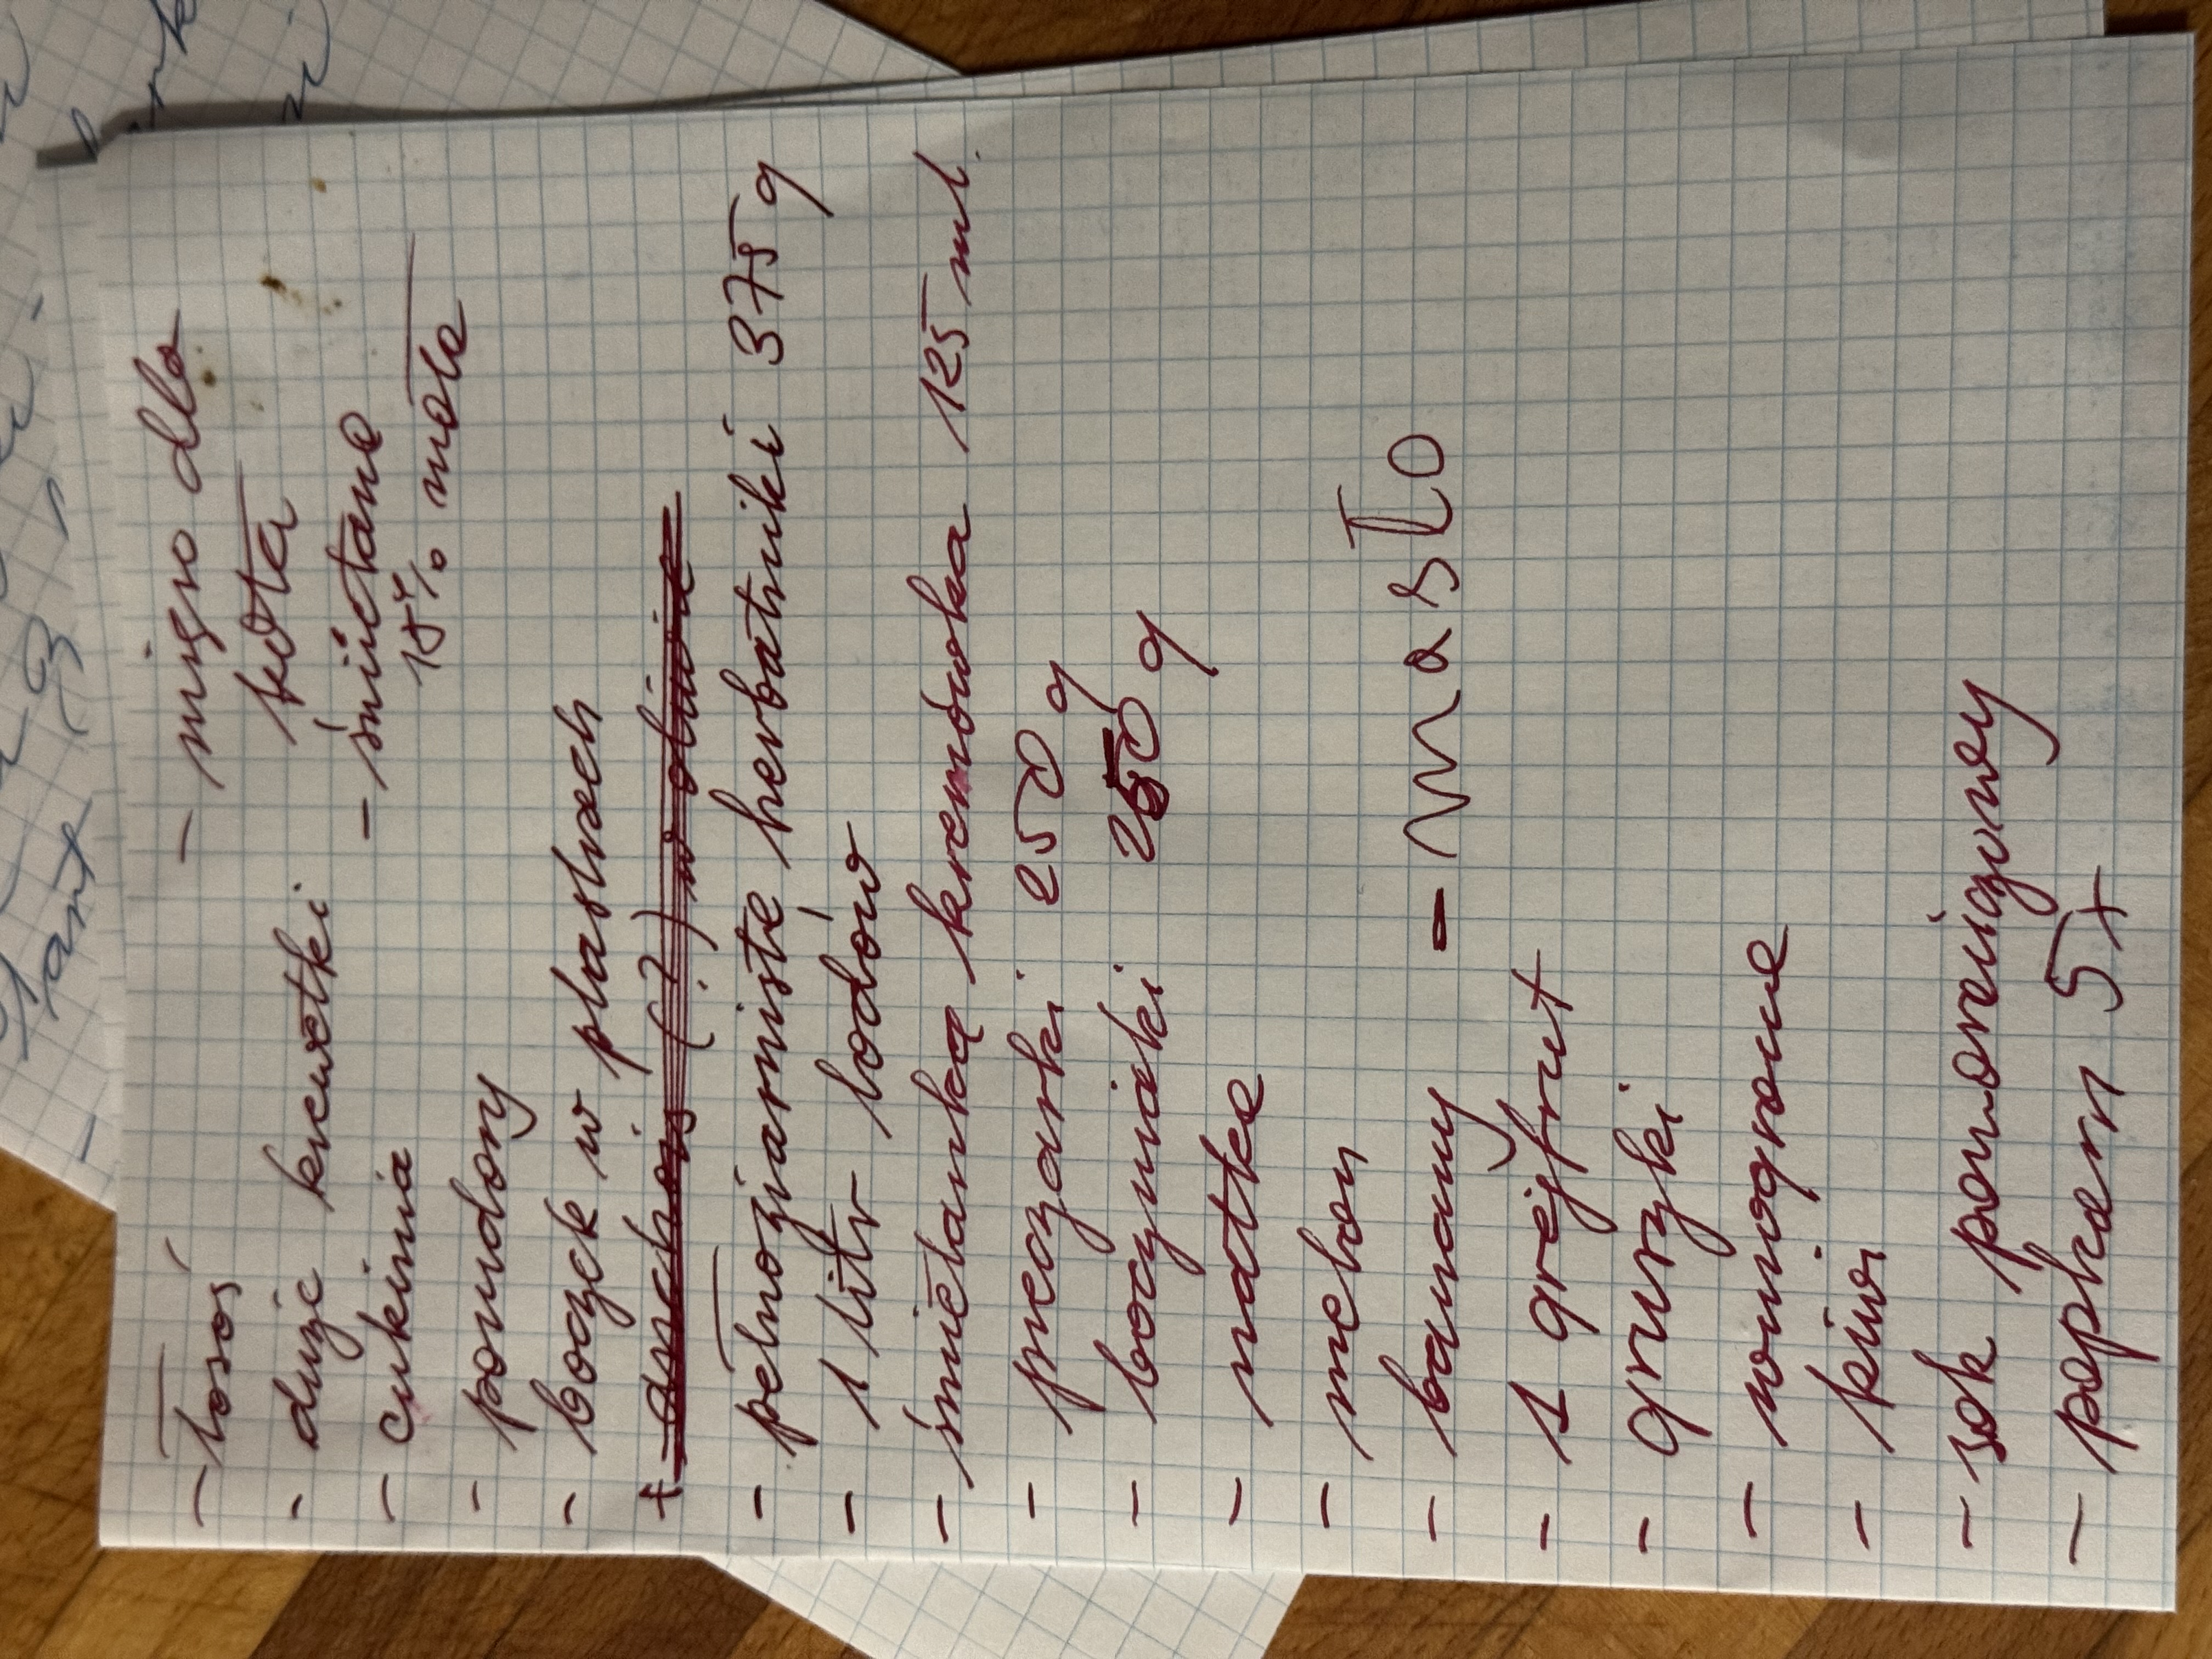 - łosoś
- duże krewetki
- cukinia
- pomidory
- boczek w plastrach
- anchois (?) w oliwie
- pełnoziarniste herbatniki 375 g
- 1 litr lodów
- śmietanka kremówka 125 ml.
- pieczarki 250 g
- boczniaki 250 g
- natka
- melon
- banany
- 1 grejfrut
- gruszki
- winogrona
- kiwi
- sok pomarańczowy
- popkorn 5x
- mięso dla
kota
- śmietana
18% mała
- masło